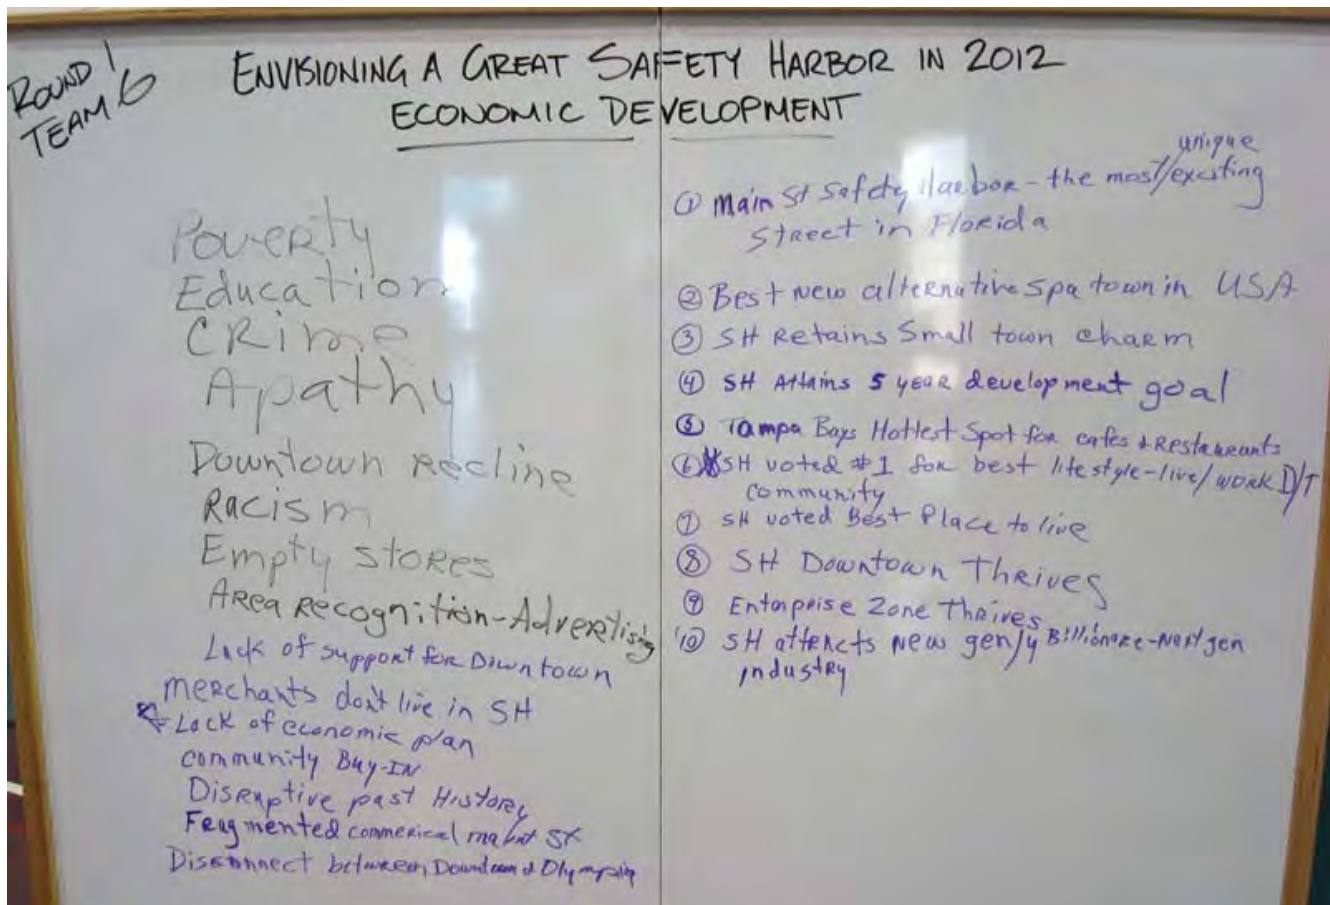 ROUND 1
TEAM 6
ENVISIONING A GREAT SAFETY HARBOR IN 2012
ECONOMIC DEVELOPMENT
Poverty
Education
CRime
Apathy
Downtown Recline
Racism
Empty stores
Area Recognition-Advertising
Lack of support for Downtown
merchants don't live in SH
Lack of economic plan
community Buy-IN
Disruptive past History
Fragmented commerical St
Disconnect between Downtown & Olympia
unique
① Main St Safety Harbor - the most/exciting
street in Florida
② Best New alternative spa town in USA
③ SH Retains Small town charm
④ SH Attains 5 year development goal
⑤ Tampa Bays Hottest Spot for cafes & Restaurants
⑥ SH voted #1 for best lifestyle-live/work D/T
community
⑦ SH voted Best Place to live
⑧ SH Downtown Thrives
⑨ Enterprise Zone Thrives
⑩ SH attracts New gen/y Billionare-Next gen
industry